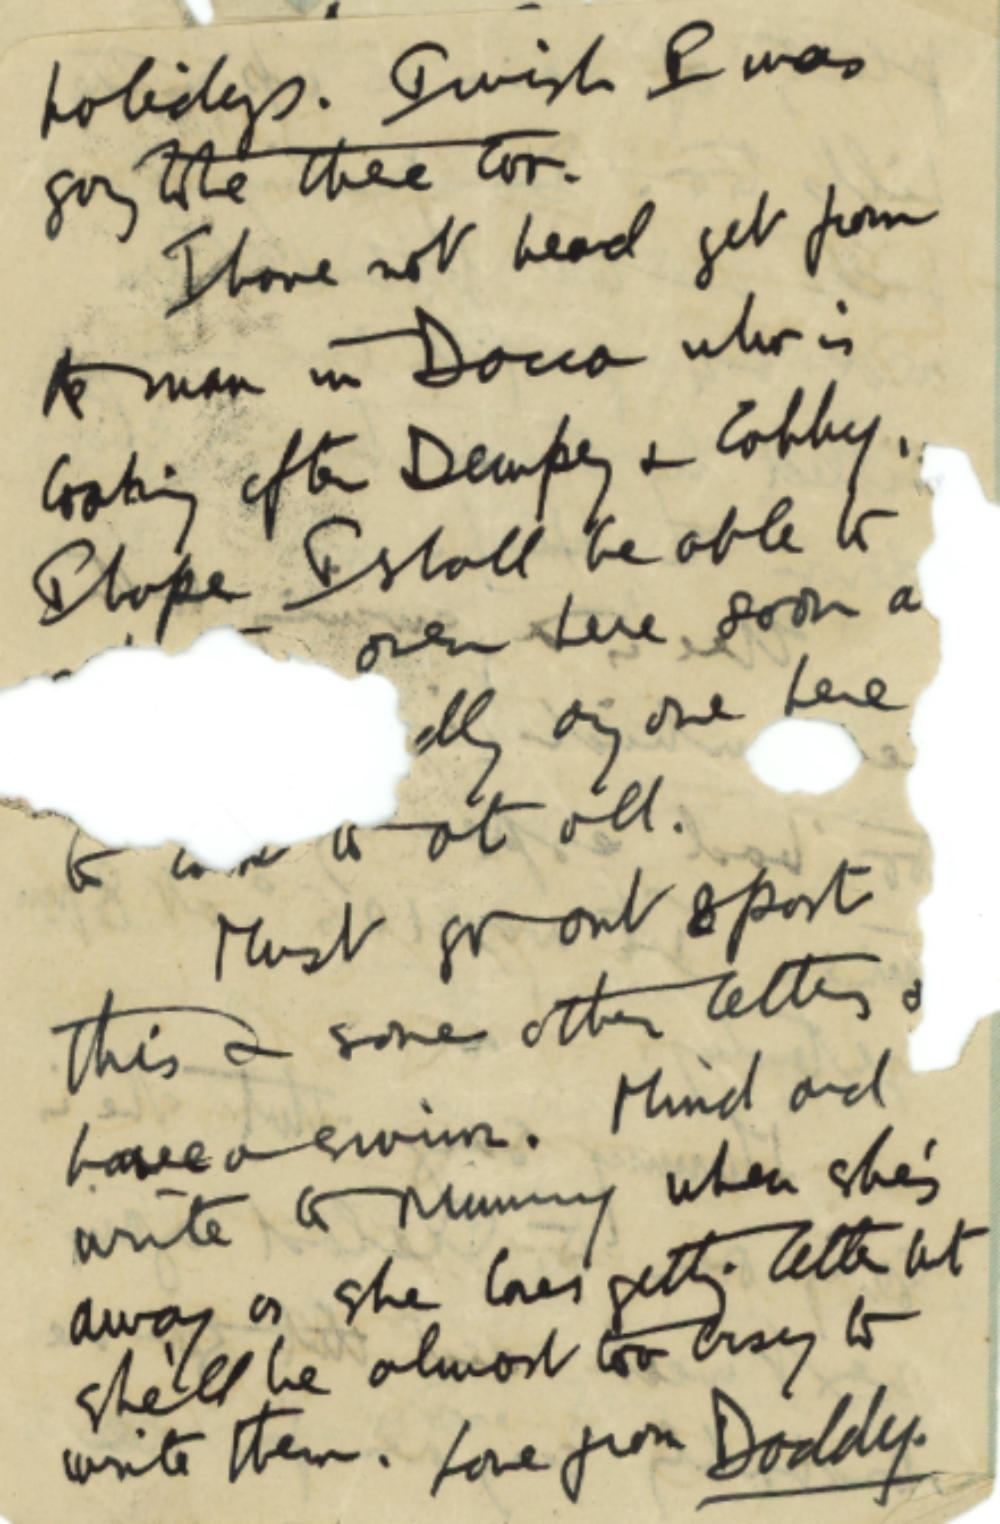 holidays. I wish I was
going to be there too.
I have not heard yet from
the man in Dacca who is
looking after Dempsey & Cobby.
I hope I shall be able to
over here soon a
dly any one here
to to at all.
Must go out & post
this & some other letters &
have a swim. Mind and
write to Mummy when she's
away as she loves getting letters but
she'll be almost too busy to
write them. Love from Daddy.